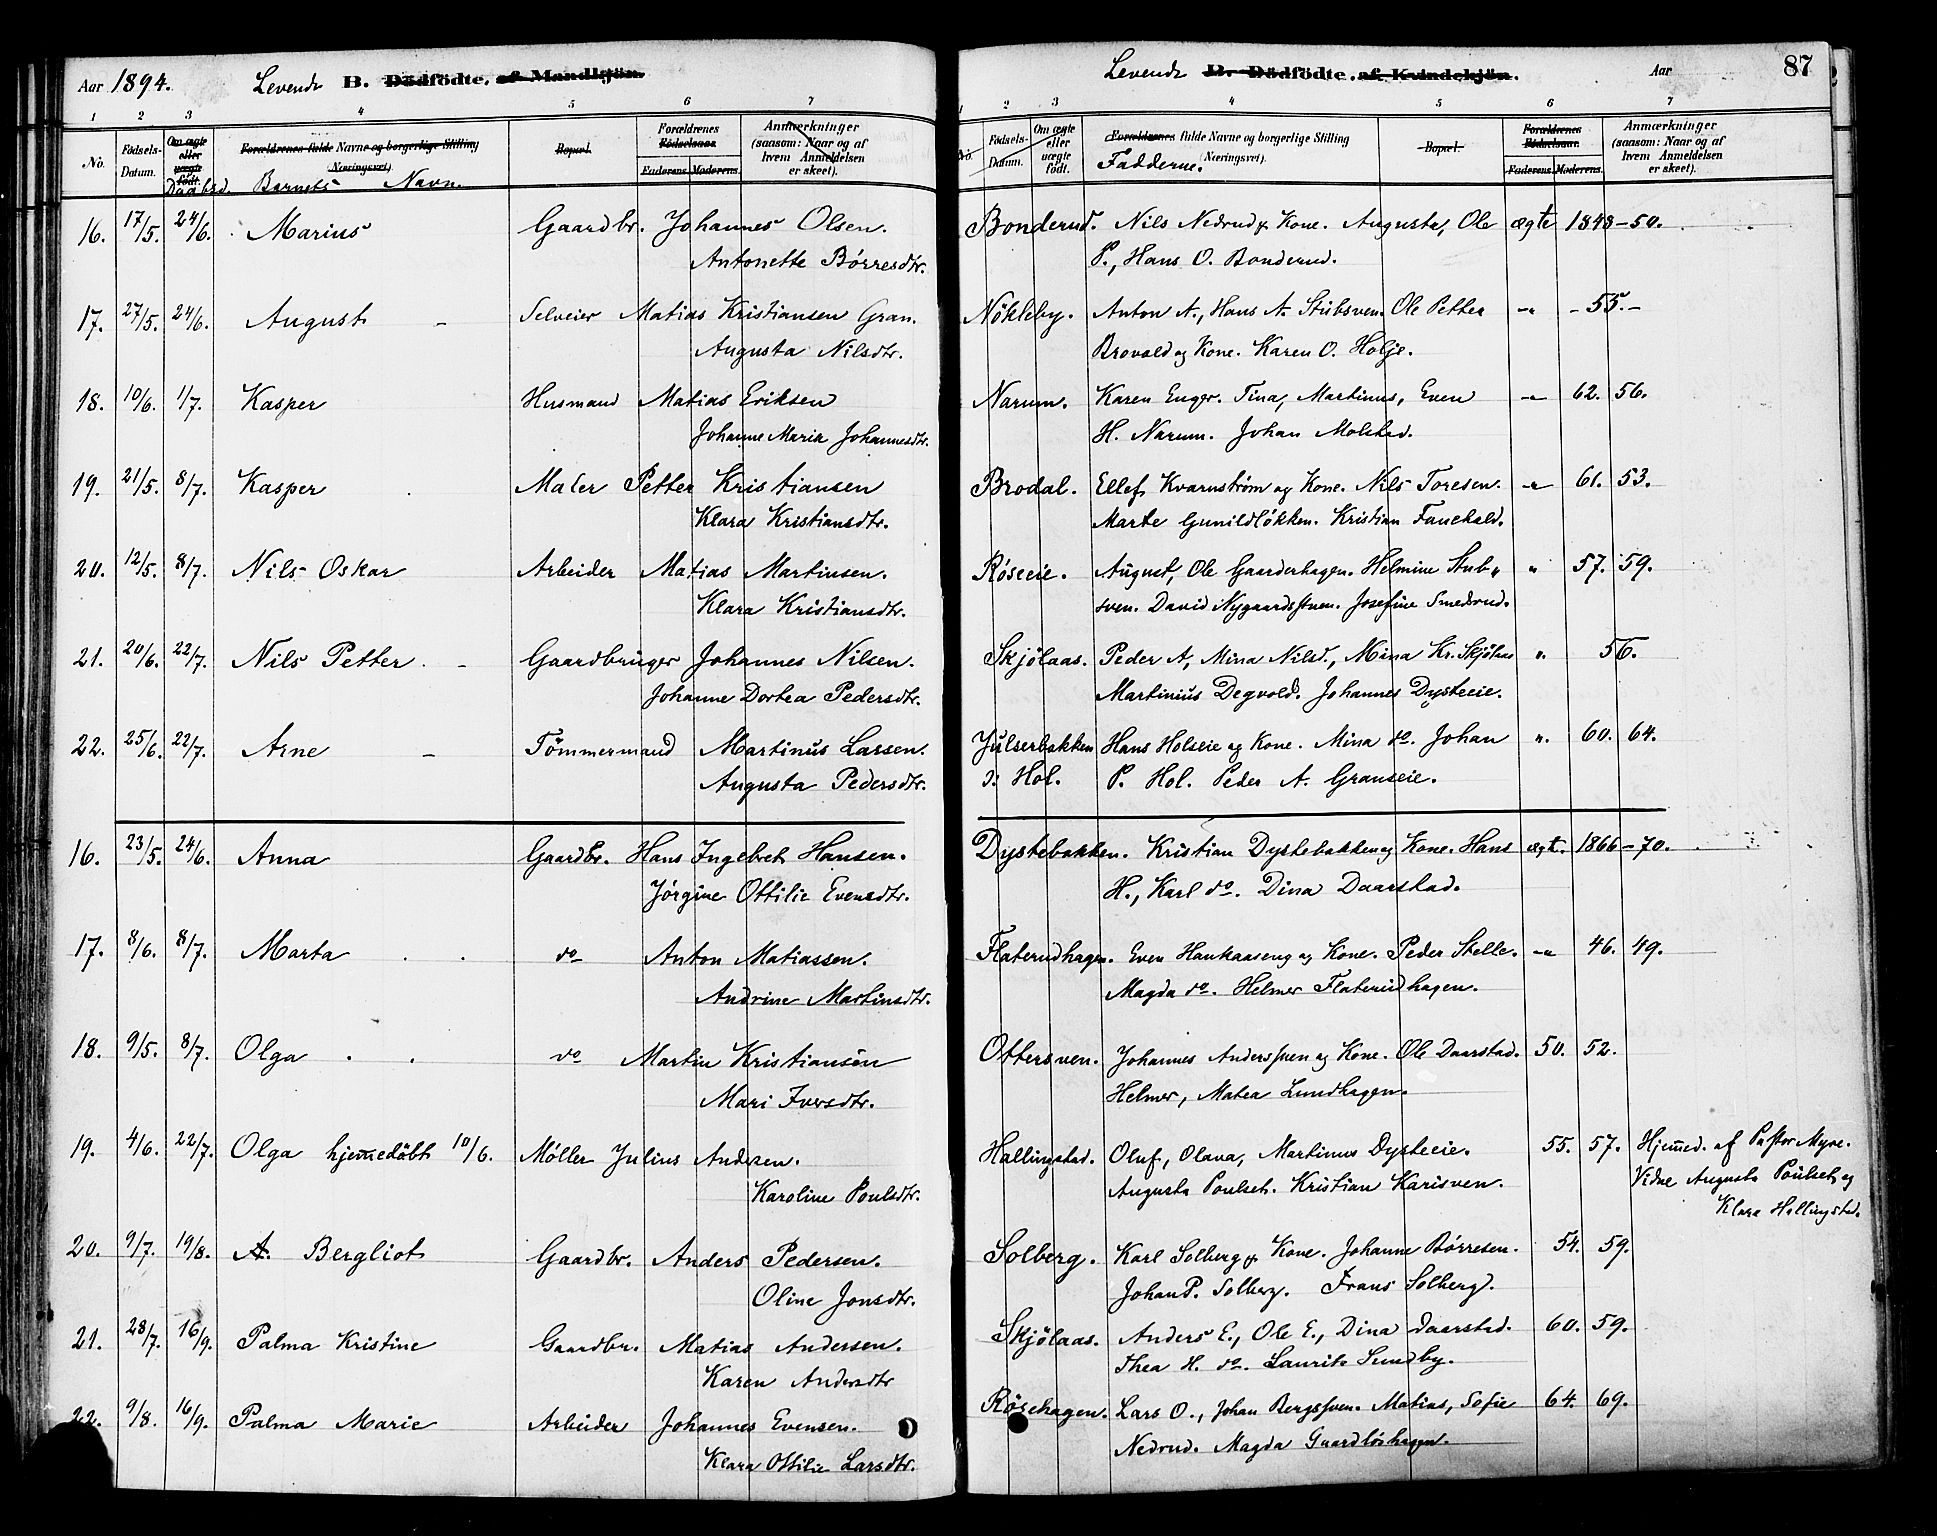 Aar 1894. Levende B. Dödfödte, af Mandkjön.
1 2 3 4 5 6 7
No. Födsels-Datum. Om ægte eller uægte födt. Daabsd. Forældrenes fulde Navne og borgerlige Stilling (Næringsvei). Barnets Navn. Bopæl. Forældrenes Födselsaar. Faderens. Moderens. Anmærkninger (saasom: Naar og af hvem Anmeldelsen er skeet).
16. 17/5. 24/6. Marius Gaardbr. Johannes Olsen.
Antonette Börresdtr.
17. 27/5. 24/6. August - Selveier Matias Kristiansen Gran.
Augusta Nilsdtr.
18. 10/6. 1/7. Kasper Husmand Matias Eriksen
Johanne Maria Johannesdtr.
19. 21/5. 8/7. Kasper Maler Petter Kristiansen
Klara Kristiansdtr.
20. 12/5. 8/7. Nils Oskar Arbeider Matias Martinsen.
Klara Kristiansdtr.
21. 20/6. 22/7. Nils Petter. - Gaardbruger Johannes Nilsen.
Johanne Dortea Pedersdtr.
22. 25/6. 22/7. Arne - Tömmermand Martinus Larsen.
Augusta Pedersdtr.
16. 23/5. 24/6. Anna Gaardbr. Hans Ingebret Hansen.
Jörgine Ottilie Evensdtr.
17. 8/6. 8/7. Marta do Anton Matiassen.
Andrine Martinsdtr.
18. 9/5. 8/7. Olga do Martin Kristiansen
Mari Iversdtr.
19. 4/6. 22/7. Olga hjemmedöbt 10/6. Møller Julius Andersen.
Karoline Poulsdtr.
20. 9/7. 19/8. A. Bergliot Gaardbr. Anders Pedersen.
Oline Jonsdtr.
21. 28/7. 16/9. Palma Kristine Gaardbr. Matias Andersen.
Karen Andersdtr
22. 9/8. 16/9. Palma Marie Arbeider Johannes Evensen.
Klara Ottilie Larsdtr.
Levende B. Dödfödte, af Kvindekjön. Aar 87
1 2 3 4 5 6 7
No. Födsels-Datum. Om ægte eller uægte födt. Forældrenes fulde Navne og borgerlige Stilling (Næringsvei). Fadderne. Bopæl. Forældrenes Födselsaar. Faderens. Moderens. Anmærkninger (saasom: Naar og af hvem Anmeldelsen er skeet).
Bonderud. Nils Nedrud & Kone. Augusta, Ole ægte 1848-50.
P., Hans O. Bonderud.
Nökleby. Anton A., Hans A. Stubsven. Ole Petter -"- - 55.-
Brovold og Kone. Karen O. Holje.
Narum. Karen Enger. Tina, Martinus, Even -"- 62. 56.
H. Narum. Johan Molstad.
Brodal. Ellef Kvarnström og Kone. Nils Toresen. -"- 61. 53.
Marte Gunildlökken. Kristian Fauchald.
Röseeie. August, Ole Gaarderhagen. Helmine Stub- " 57. 59.
sven. David Nygaardssven. Josefine Smedsrud.
Skjölaas. Peder A, Mina Nilsd., Mina Kr. Skjölaas " 56.
Martinius Degvold. Johannes Dysteeie.
Julserbakken Hans Holseie og Kone. Mina do. Johan ". 60. 64.
ɔ: Hol. P. Hol. Peder A. Granseie.
Dystebakken. Kristian Dystebakken og Kone. Hans ægt. 1866-70.
H., Karl do. Dina Daarstad.
Flaterudhagen. Even Haukaaseng og Kone. Peder Stelle. -"- 46. 49.
Magda do. Helmer Flaterudhagen.
Ottersven. Johannes Anderssven og Kone. Ole Daarstad. 50. 52.
Helmer, Matea Lundhagen.
Hallingstad. Oluf, Olava, Martinus Dysteeie. 55. 57. Hjemmed. af Pastor Myre.
Augusta Poulset. Kristian Karisven. Vidne Augusta Poulset og
Klara Hallingstad.
Solberg. Karl Solberg & Kone. Johanne Börresen. 54. 59.
Johan P. Solberg. Frans Solberg.
Skjölaas. Anders E., Ole E., Dina Daarstad. 60. 59.
Thea H. do. Laurits Sundby.
Rösehagen. Lars O., Johan Bergssven. Matias, Sofie 64. 69.
Nedrud. Magda Gaardløshagen.